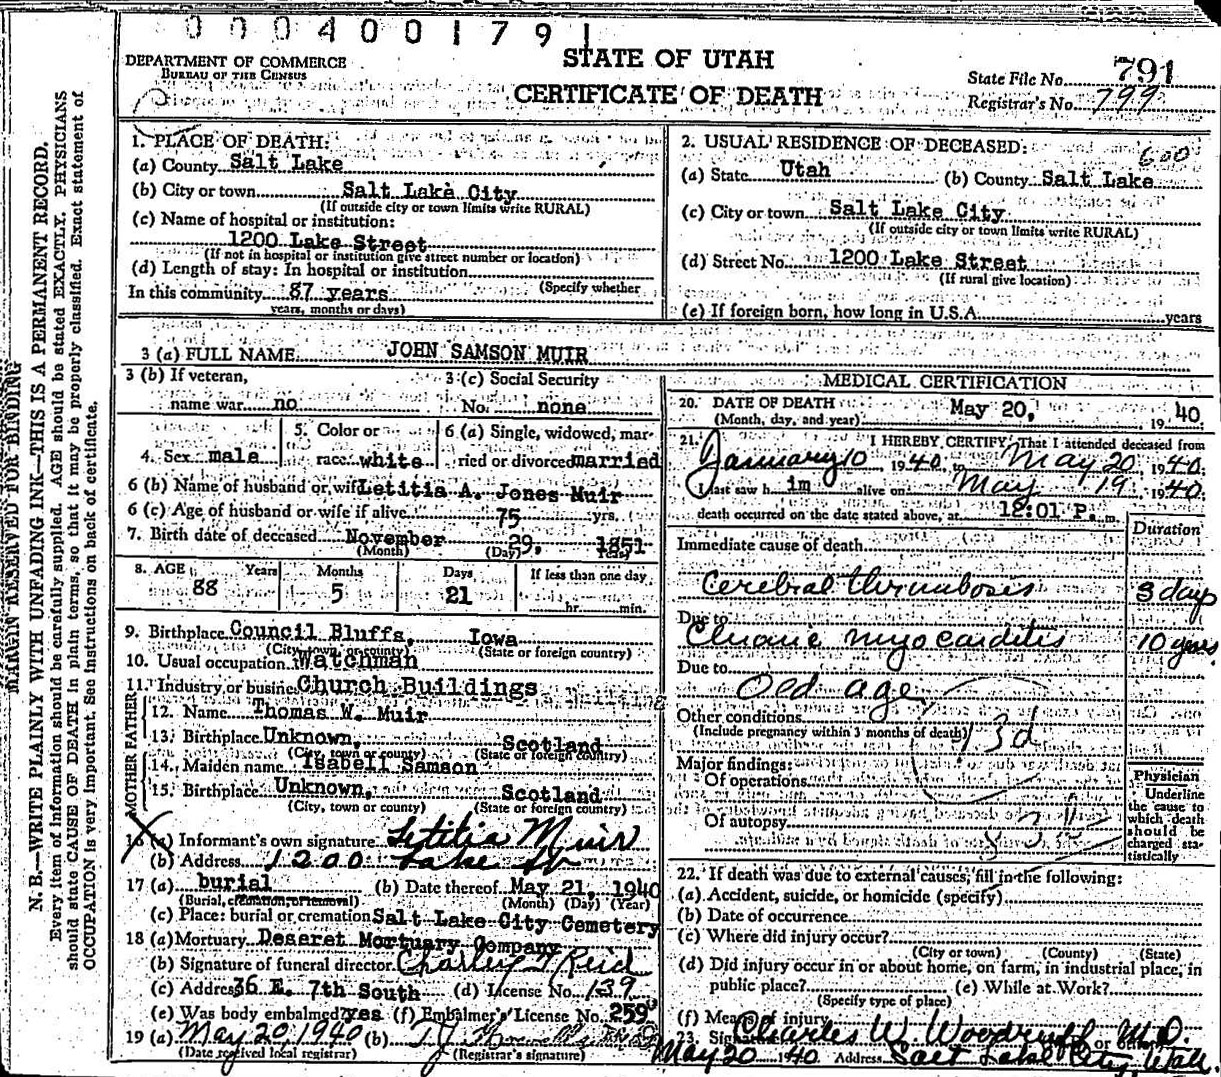 0 0 0 4 0 0 1 7 9 1
DEPARTMENT OF COMMERCE
BUREAU OF THE CENSUS
STATE OF UTAH
CERTIFICATE OF DEATH
State File No. 791
Registrar's No. 799
MARGIN RESERVED FOR BINDING
N. B.—WRITE PLAINLY WITH UNFADING INK—THIS IS A PERMANENT RECORD.
Every item of information should be carefully supplied. AGE should be stated EXACTLY. PHYSICIANS
should state CAUSE OF DEATH in plain terms, so that it may be properly classified. Exact statement of
OCCUPATION is very important. See instructions on back of certificate.
1. PLACE OF DEATH:
(a) County Salt Lake
(b) City or town Salt Lake City
(If outside city or town limits write RURAL)
(c) Name of hospital or institution:
1200 Lake Street
(If not in hospital or institution give street number or location)
(d) Length of stay: In hospital or institution
(Specify whether
In this community 87 years
years, months or days)
2. USUAL RESIDENCE OF DECEASED:
600
(a) State Utah (b) County Salt Lake
(c) City or town Salt Lake City
(If outside city or town limits write RURAL)
(d) Street No. 1200 Lake Street
(If rural give location)
(e) If foreign born, how long in U.S.A. years
3 (a) FULL NAME JOHN SAMSON MUIR
3 (b) If veteran,
name war no
3 (c) Social Security
No. none
4. Sex male
5. Color or
race white
6 (a) Single, widowed, mar-
ried or divorced married
6 (b) Name of husband or wife Letitia A. Jones Muir
6 (c) Age of husband or wife if alive 75 yrs.
7. Birth date of deceased November 29, 1851
(Month) (Day) (Year)
8. AGE Years Months Days If less than one day
88 5 21 hr. min.
9. Birthplace Council Bluffs, Iowa
(City, town, or county) (State or foreign country)
10. Usual occupation Watchman
11. Industry or business Church Buildings
FATHER
12. Name Thomas W. Muir
13. Birthplace Unknown, Scotland
(City, town or county) (State or foreign country)
MOTHER
14. Maiden name Isabell Samson
15. Birthplace Unknown, Scotland
(City, town or county) (State or foreign country)
16 (a) Informant's own signature Letitia Muir
(b) Address 1200 Lake St
17 (a) burial (b) Date thereof May 21, 1940
(Burial, cremation, or removal) (Month) (Day) (Year)
(c) Place: burial or cremation Salt Lake City Cemetery
18 (a) Mortuary Deseret Mortuary Company
(b) Signature of funeral director Charley T Reid
(c) Address 36 E. 7th South (d) License No. 139
(e) Was body embalmed? yes (f) Embalmer's License No. 259
19 (a) May 20, 1940 (b) T.J.
(Date received local registrar) (Registrar's signature)
MEDICAL CERTIFICATION
20. DATE OF DEATH May 20, 19 40
(Month, day, and year)
21. I HEREBY CERTIFY, That I attended deceased from
January 10 1940, to May 20, 1940.
I last saw him alive on May 19, 1940
death occurred on the date stated above, at 12:01 P. m.
Duration
Immediate cause of death
Cerebral thrombosis 3 days
Due to
Chronic myocarditis 10 years
Due to
Old age
Other conditions
(Include pregnancy within 3 months of death)
Major findings:
Of operations
Of autopsy
Physician
Underline
the cause to
which death
should be
charged sta-
tistically
22. If death was due to external causes, fill in the following:
(a) Accident, suicide, or homicide (specify)
(b) Date of occurrence
(c) Where did injury occur?
(City or town) (County) (State)
(d) Did injury occur in or about home, on farm, in industrial place, in
public place? (e) While at Work?
(Specify type of place)
(f) Means of injury
23. Signature Charles W. Woodruff M.D.
or other
May 20 1940 Address Salt Lake City, Utah.